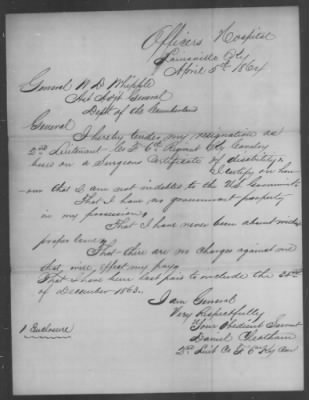 Officers Hospital
Louisville Ky
April 5th 1864
General W D Whipple
Ast Adjt General
Dept of the Cumberland
General
I hereby tender my resignation as
2nd Lieutenant Co F 6th Regiment Ky Cavalry
base on a Surgeons Certificate of disability &
I Certify on hon-
our that I am not indebted to the U.S. Government
That I have no government property
in my possession
That I have never been absent without
proper leave
That there are no Charges against me
that will effect my pay
That I have been last paid to include the 31st
of December 1863.
I am General
Very Respectfully
Your Obedient Servant
Daniel Cheatham
2nd Lieut Co F 6th Ky Cav
1 Enclosure